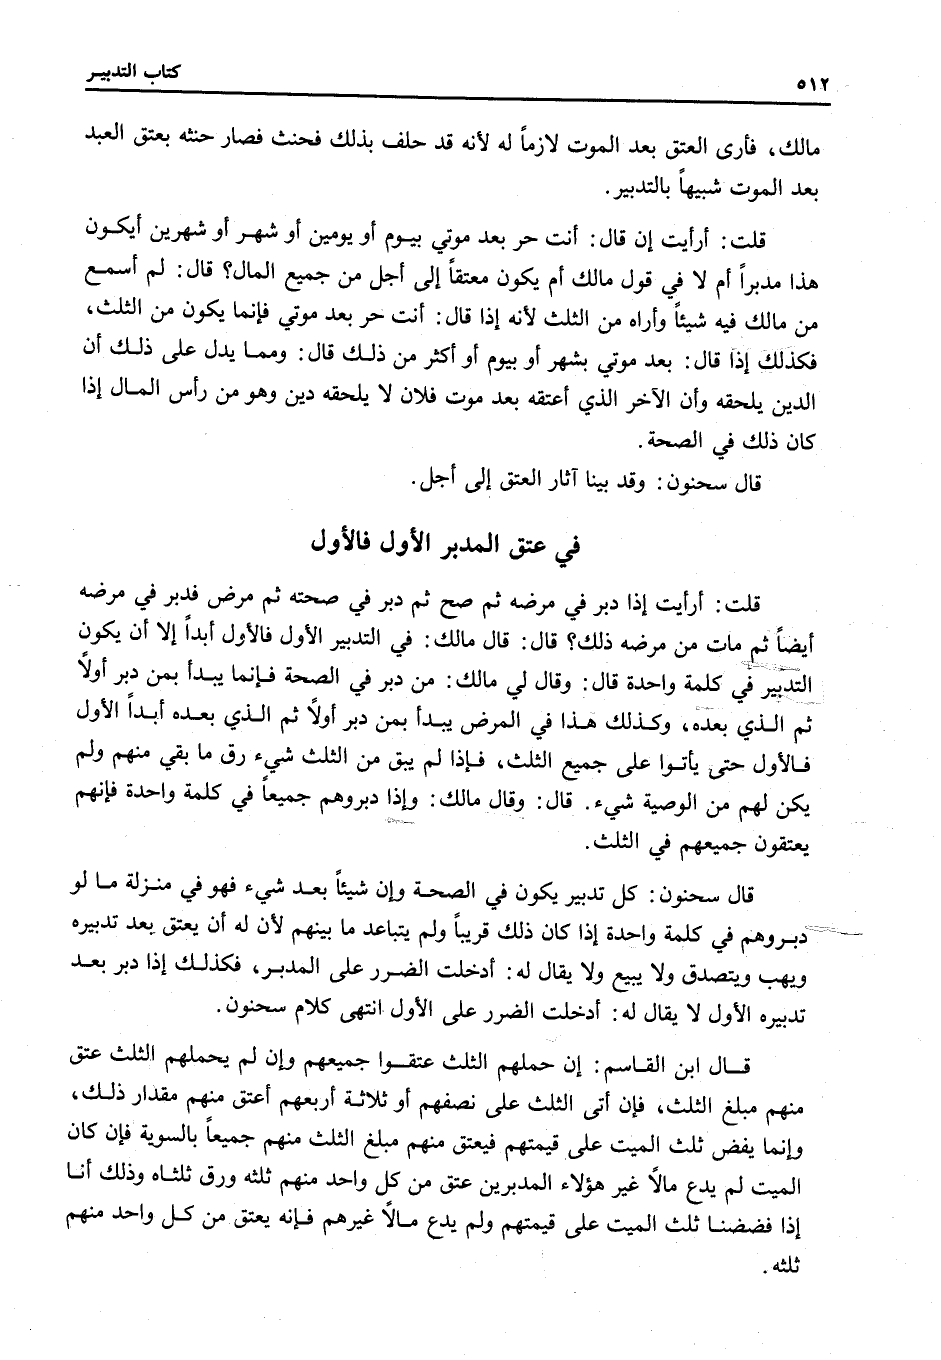 ٥١٢
كتاب التدبير
مالك، فأرى العتق بعد الموت لازماً له لأنه قد حلف بذلك فحنث فصار حنثه بعتق العبد
بعد الموت شبيهاً بالتدبير.
قلت: أرأيت إن قال: أنت حر بعد موتي بيوم أو يومين أو شهر أو شهرين أيكون
هذا مدبراً أم لا في قول مالك أم يكون معتقاً إلى أجل من جميع المال؟ قال: لم أسمع
من مالك فيه شيئاً وأراه من الثلث لأنه إذا قال: أنت حر بعد موتي فإنما يكون من الثلث،
فكذلك إذا قال: بعد موتي بشهر أو بيوم أو أكثر من ذلك قال: ومما يدل على ذلك أن
الدين يلحقه وأن الآخر الذي أعتقه بعد موت فلان لا يلحقه دين وهو من رأس المال إذا
كان ذلك في الصحة.
قال سحنون: وقد بينا آثار العتق إلى أجل.
في عتق المدبر الأول فالأول
قلت: أرأيت إذا دبر في مرضه ثم صح ثم دبر في صحته ثم مرض فدبر في مرضه
أيضاً ثم مات من مرضه ذلك؟ قال: قال مالك: في التدبير الأول فالأول أبداً إلا أن يكون
التدبير في كلمة واحدة قال: وقال لي مالك: من دبر في الصحة فإنما يبدأ بمن دبر أولاً
ثم الذي بعده، وكذلك هذا في المرض يبدأ بمن دبر أولاً ثم الذي بعده أبداً الأول
فالأول حتى يأتوا على جميع الثلث، فإذا لم يبق من الثلث شيء رق ما بقي منهم ولم
يكن لهم من الوصية شيء. قال: وقال مالك: وإذا دبروهم جميعاً في كلمة واحدة فإنهم
يعتقون جميعهم في الثلث.
قال سحنون: كل تدبير يكون في الصحة وإن شيئاً بعد شيء فهو في منزلة ما لو
دبروهم في كلمة واحدة إذا كان ذلك قريباً ولم يتباعد ما بينهم لأن له أن يعتق بعد تدبيره
ويهب ويتصدق ولا يبيع ولا يقال له: أدخلت الضرر على المدبر، فكذلك إذا دبر بعد
تدبيره الأول لا يقال له: أدخلت الضرر على الأول انتهى كلام سحنون.
قال ابن القاسم: إن حملهم الثلث عتقوا جميعهم وإن لم يحملهم الثلث عتق
منهم مبلغ الثلث، فإن أتى الثلث على نصفهم أو ثلاثة أربعهم أعتق منهم مقدار ذلك،
وإنما يفض ثلث الميت على قيمتهم فيعتق منهم مبلغ الثلث منهم جميعاً بالسوية فإن كان
الميت لم يدع مالاً غير هؤلاء المدبرين عتق من كل واحد منهم ثلثه ورق ثلثاه وذلك أنا
إذا فضضنا ثلث الميت على قيمتهم ولم يدع مالاً غيرهم فإنه يعتق من كل واحد منهم
ثلثه.